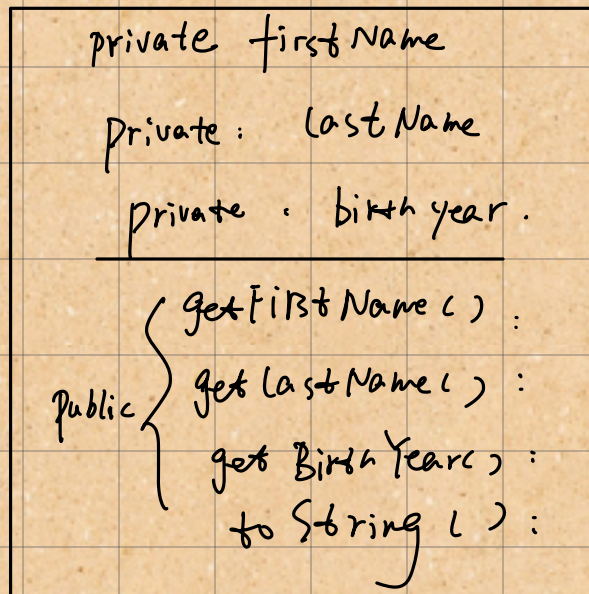 private firstName
private: lastName
private . birth year.
getFirstName():
getlastName():
public
getBirthYear():
toString():